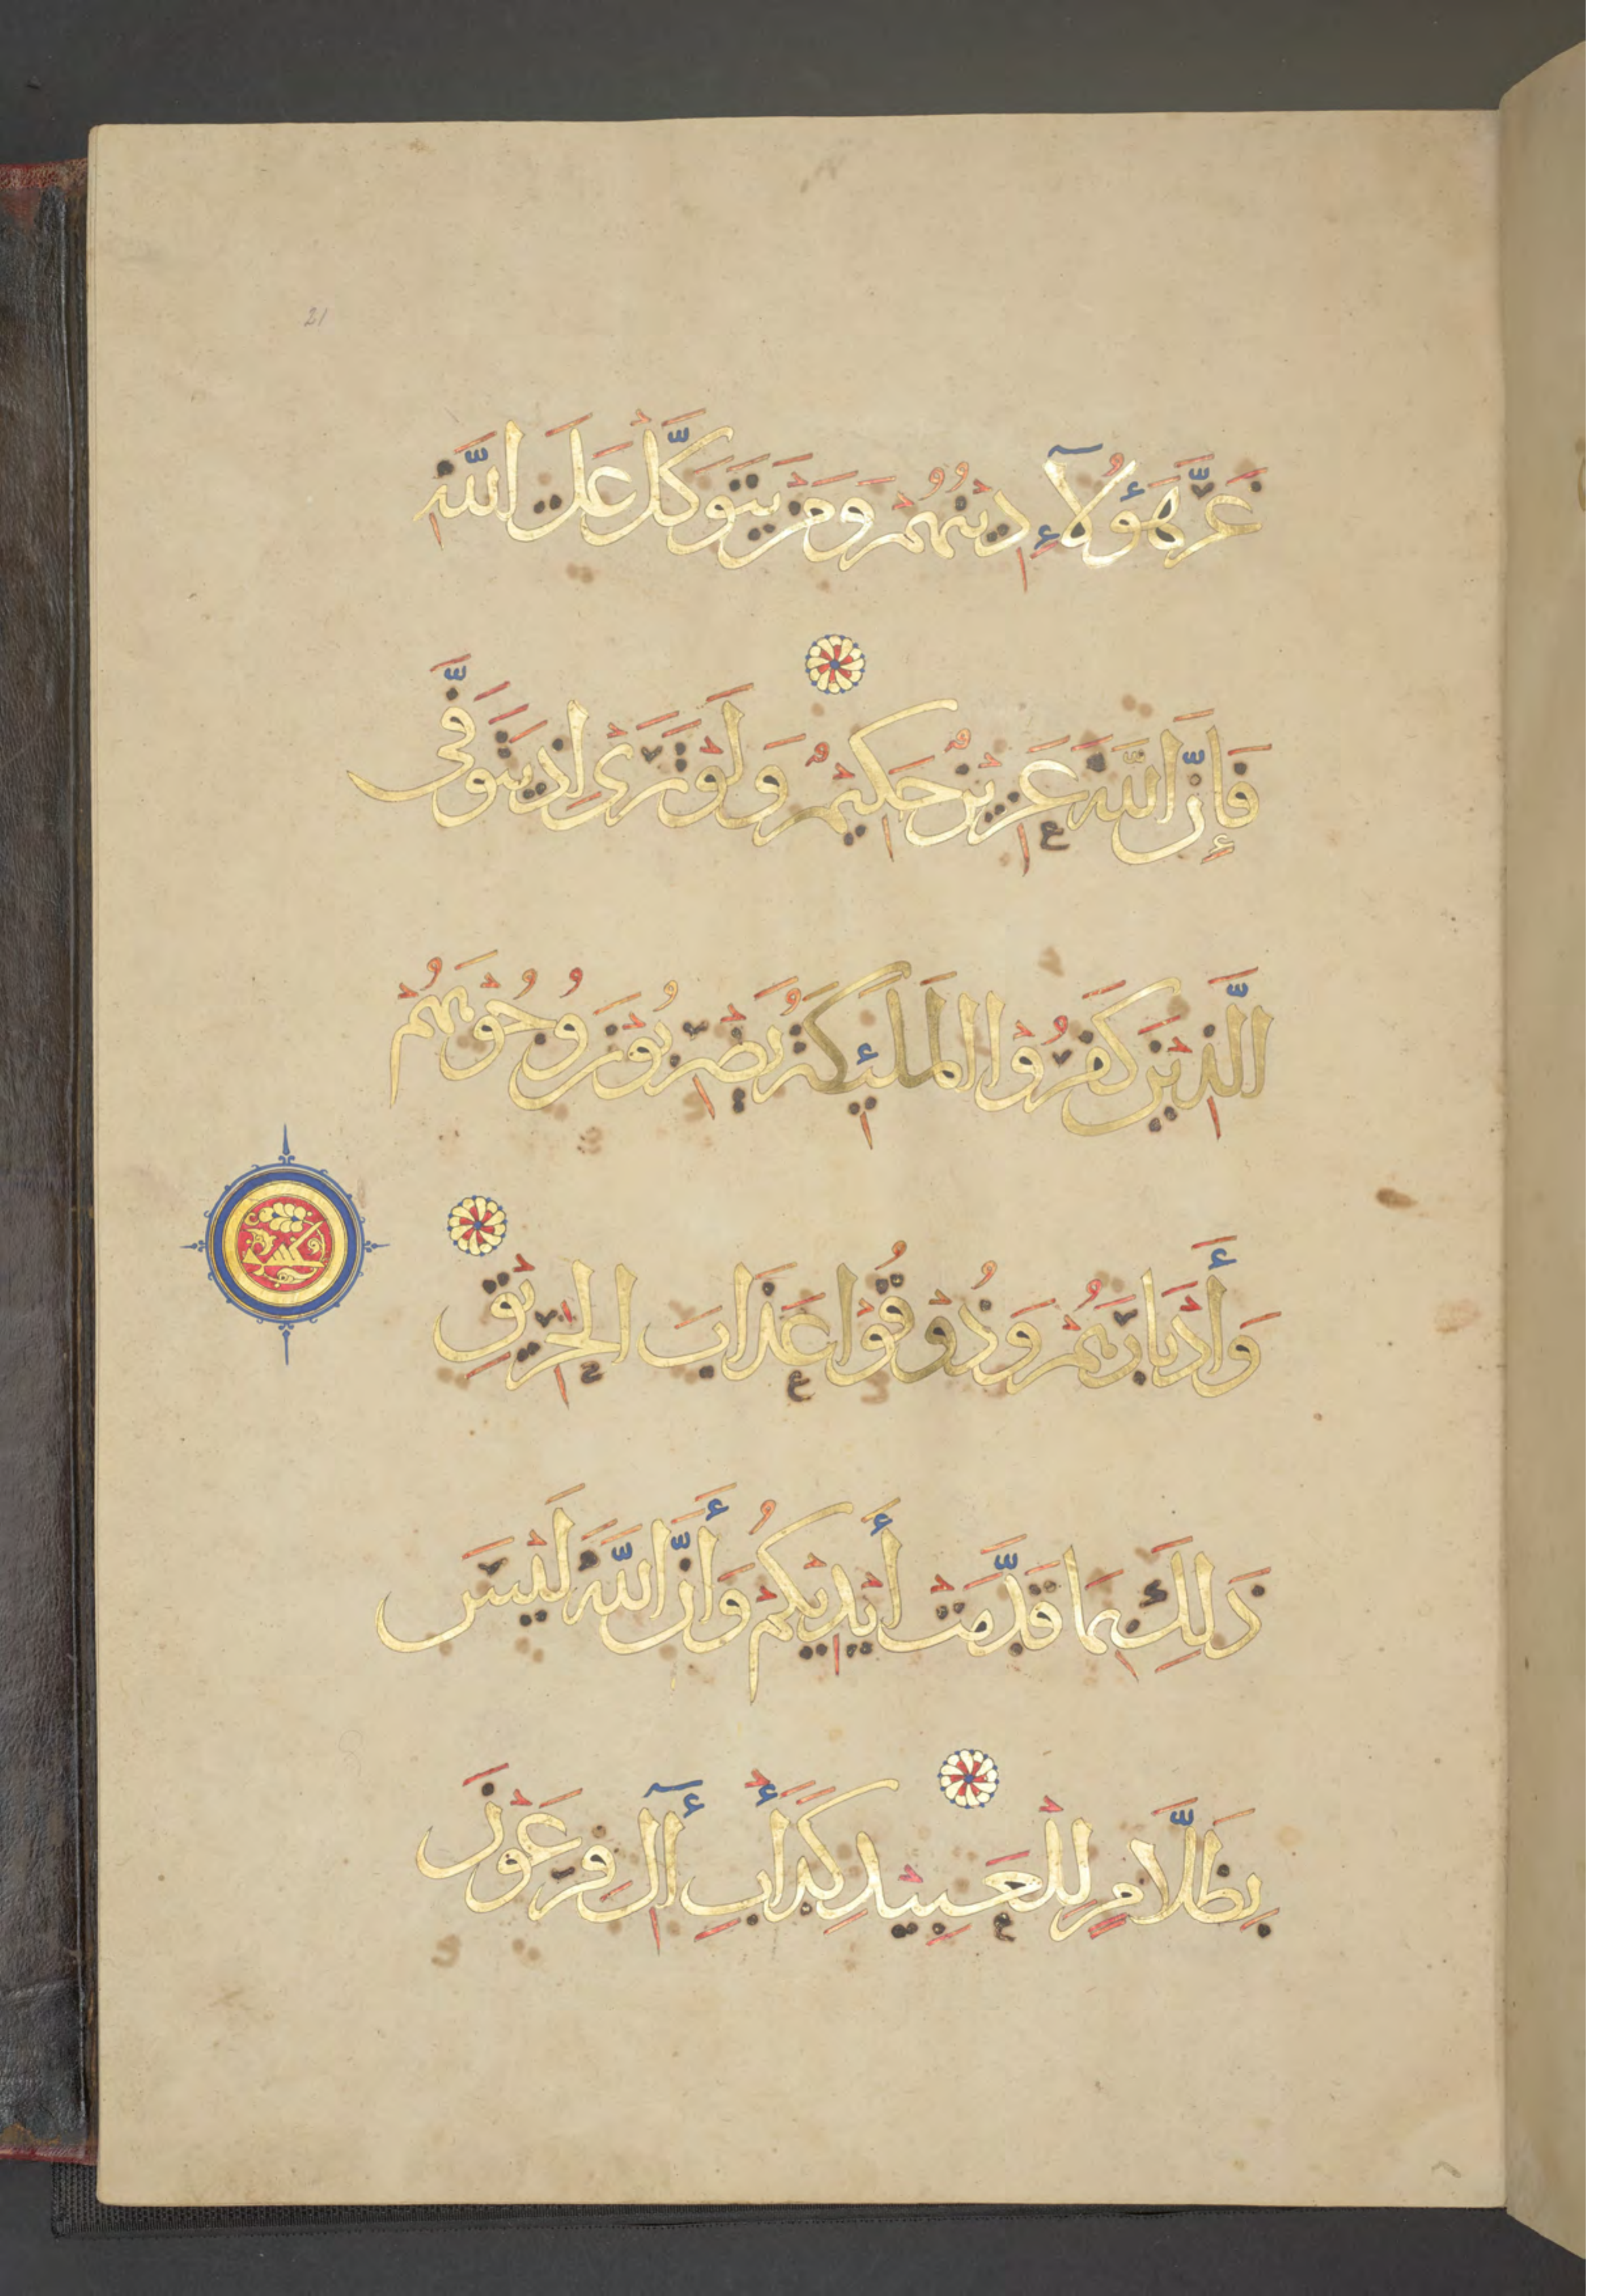 21
غَرَّ هَؤُلَآءِ دِيْنُهُمْ وَمَنْ يَتَوَكَّلْ عَلَى اللَّهِ
فَإِنَّ اللَّهَ عَزِيْزٌ حَكِيْمٌ وَلَوْ تَرَىْ إِذْ يَتَوَفَّى
الَّذِيْنَ كَفَرُوْا الْمَلَئِكَةُ يَضْرِبُوْنَ وُجُوْهَهُمْ
وَأَدْبَارَهُمْ وَذُوْقُوْا عَذَابَ الْحَرِيْقِ
ذَلِكَ بِمَا قَدَّمَتْ أَيْدِيْكُمْ وَأَنَّ اللَّهَ لَيْسَ
بِظَلَّامٍ لِلْعَبِيْدِ كَدَأْبِ أٓلِ فِرْعَوْنَ